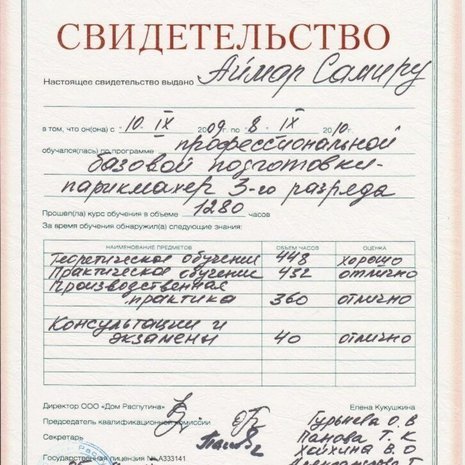 СВИДЕТЕЛЬСТВО
Настоящее свидетельство выдано Аймар Самиру
в том, что он(она) с "10" IX 2009 г. по "8" IX 2010 г.
обучался(лась) по программе профессиональной
базовой подготовки-
парикмахер 3-го разряда
Прошел(ла) курс обучения в объеме 1280 часов
За время обучения обнаружил(а) следующие знания:
НАИМЕНОВАНИЕ ПРЕДМЕТОВ ОБЪЕМ ЧАСОВ ОЦЕНКА
Теоретическое обучение 448 хорошо
Практическое обучение 432 отлично
Производственная
практика 360 отлично
Консультации и
экзамены 40 отлично
Директор ООО «Дом Распутина» Елена Кукушкина
Председатель квалификационной комиссии Гурьнева О. В
Секретарь Панова Т. К
Хейхина В. О
Государственная лицензия № А333141